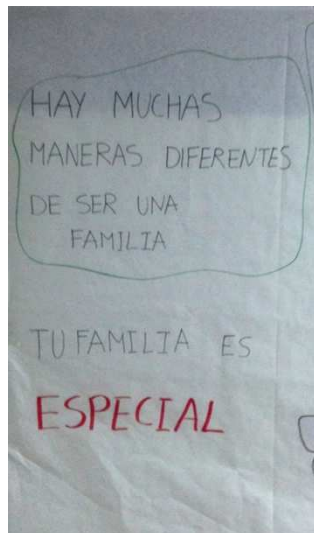 HAY MUCHAS
MANERAS DIFERENTES
DE SER UNA
FAMILIA
TU FAMILIA ES
ESPECIAL